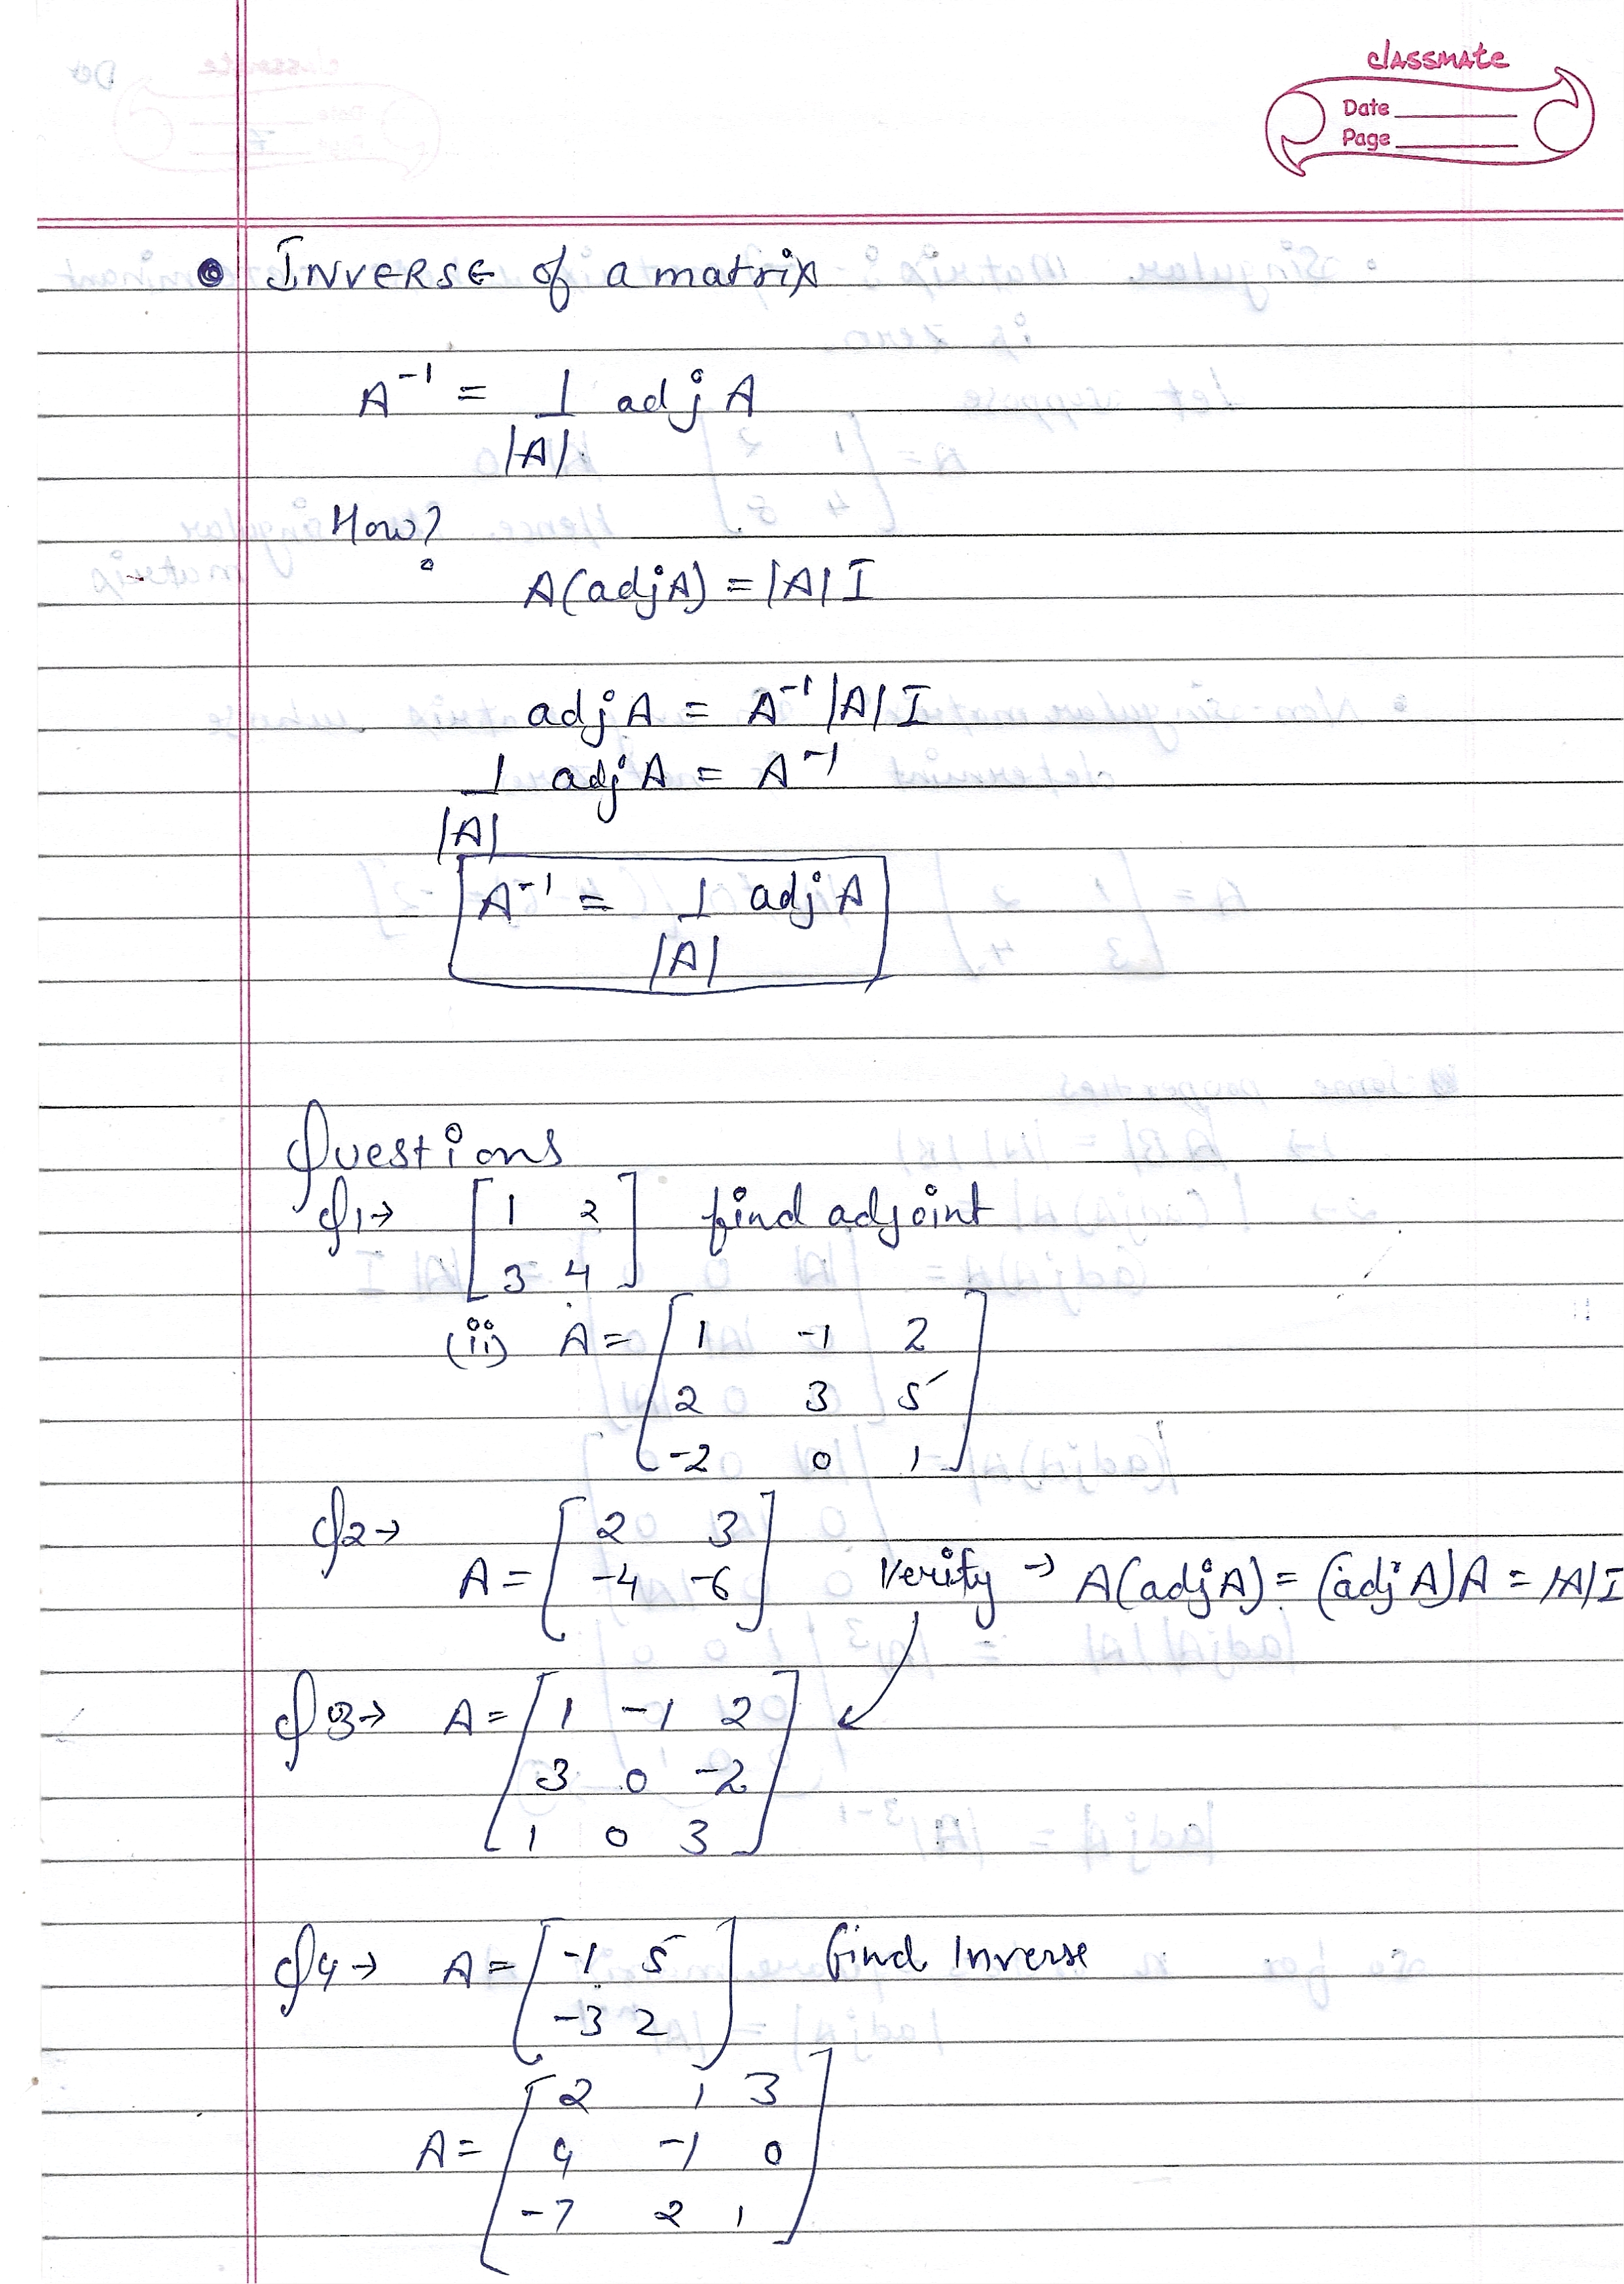 classmate
Date
Page
INVERSE of a matrix
A⁻¹ = 1/|A| adj A
How?
A(adjA) = |A| I
adj A = A⁻¹ |A| I
1/|A| adj A = A⁻¹
A⁻¹ = 1/|A| adj A
Questions
Q1→ [1 2 find adjoint
3 4]
(ii) A = [1 -1 2
2 3 5
-2 0 1]
Q2→ A = [2 3
-4 -6] Verify → A(adjA) = (adj A)A = |A| I
Q3→ A = [1 -1 2
3 0 -2
1 0 3]
Q4→ A = [-1 5 find Inverse
-3 2]
A = [2 1 3
4 -1 0
-7 2 1]